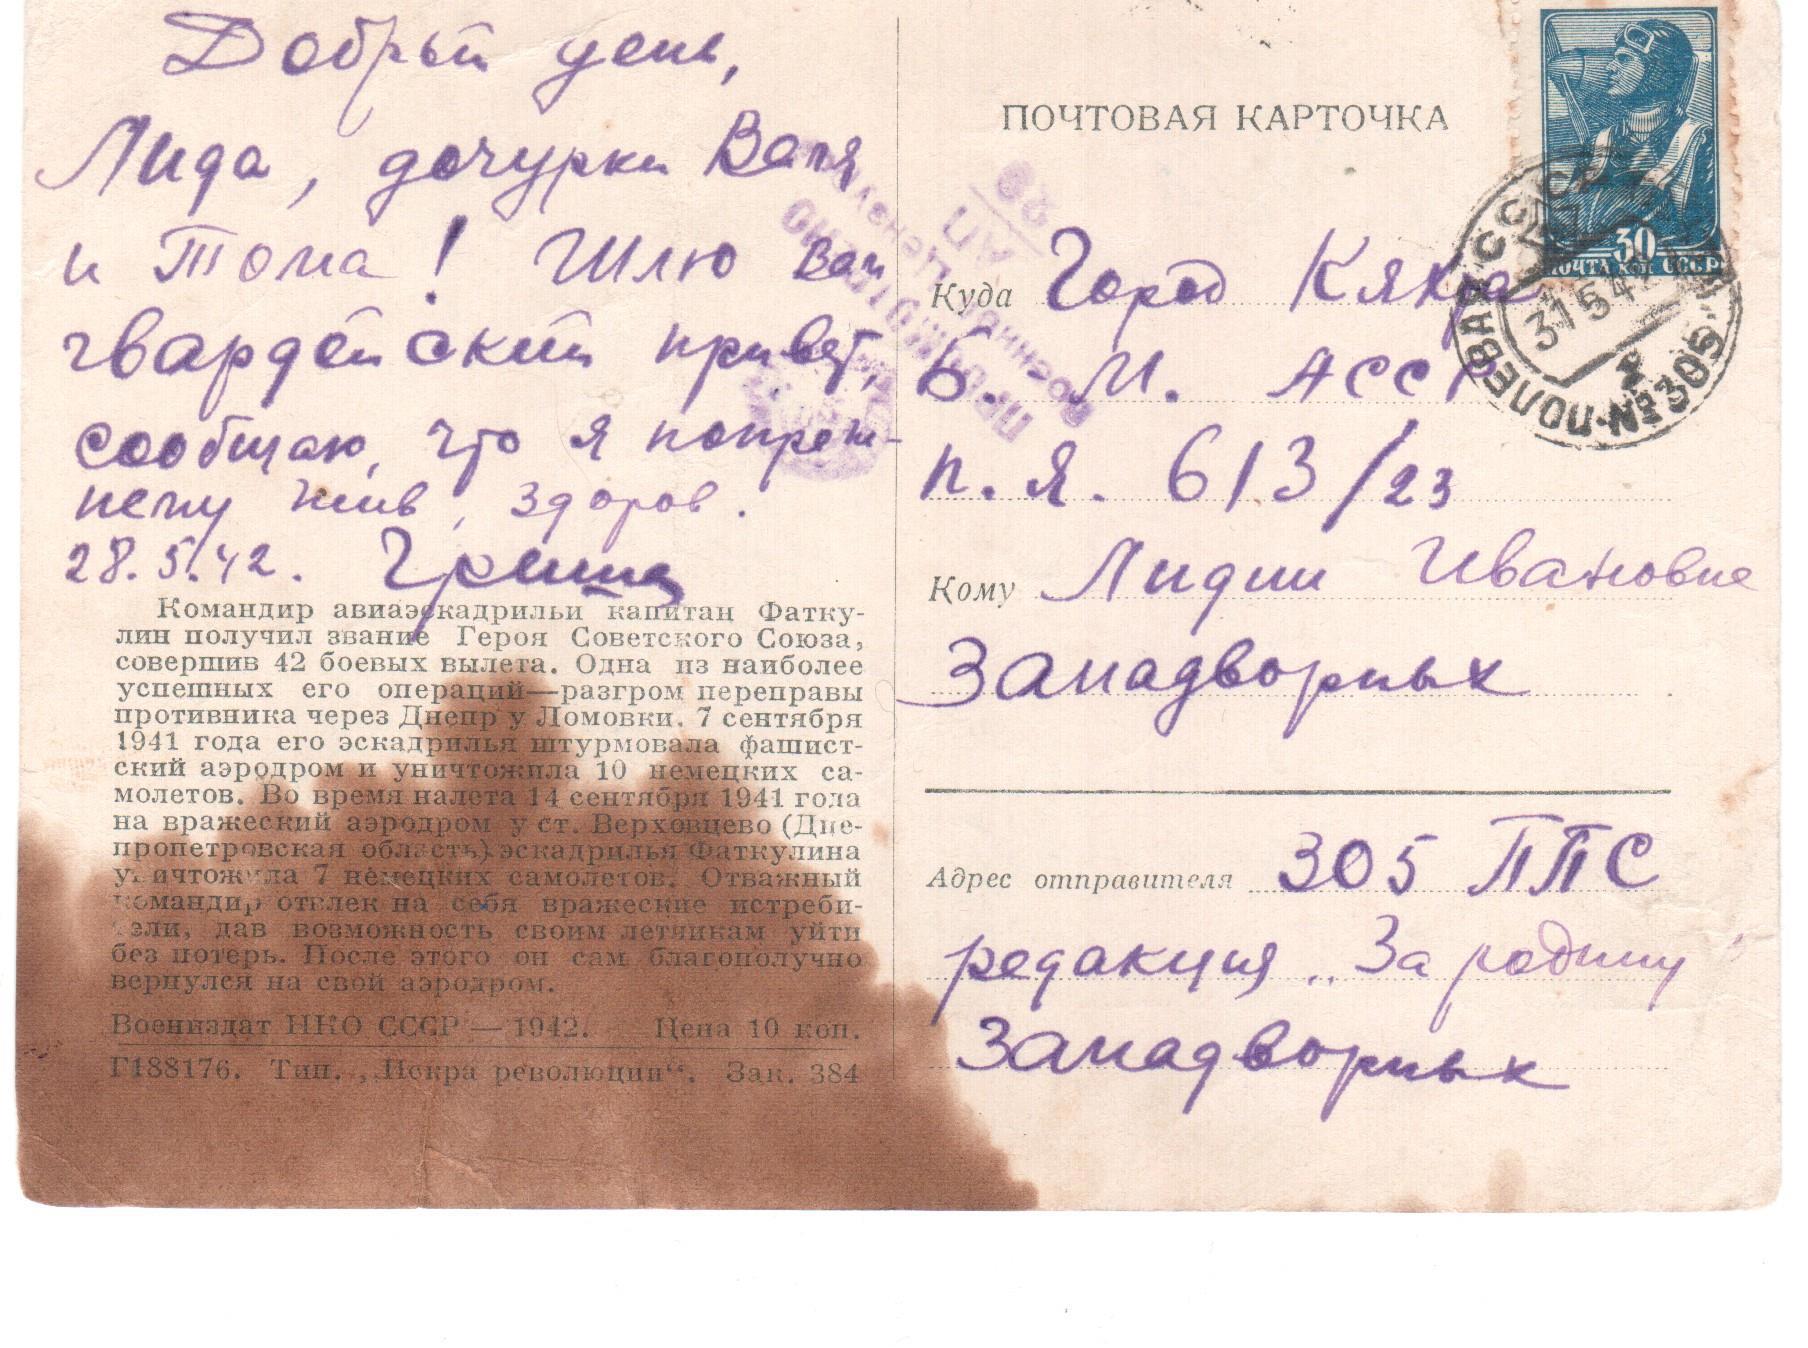 Добрый день,
Лида, дочурки Валя
и Тома! Шлю вам
гвардейский привет,
сообщаю, что я попреж-
нему жив, здоров.
28.5.42. Гриша
Командир авиаэскадрильи капитан Фатку-
лин получил звание Героя Советского Союза,
совершив 42 боевых вылета. Одна из наиболее
успешных его операций—разгром переправы
противника через Днепр у Ломовки. 7 сентября
1941 года его эскадрилья штурмовала фашист-
ский аэродром и уничтожила 10 немецких са-
молетов. Во время налета 14 сентября 1941 года
на вражеский аэродром у ст. Верховцево (Дне-
пропетровская область) эскадрилья Фаткулина
уничтожила 7 немецких самолетов. Отважный
командир отвлек на себя вражеские истреби-
тели, дав возможность своим летчикам уйти
без потерь. После этого он сам благополучно
вернулся на свой аэродром.
Воениздат НКО СССР — 1942. Цена 10 коп.
Г188176. Тип. „Искра революции“. Зак. 384
ПОЧТОВАЯ КАРТОЧКА
30
ПОЧТА КОП. СССР
ПОЛЕВАЯ
№305
31 5 42
ПРОСМОТРЕНО
Военной Цензурой
29
Куда Город Кяхта
Б. М. АССР
п. я. 613/23
Кому Лидии Ивановне
Западворных
Адрес отправителя 305 ППС
редакция „За родину"
Западворных